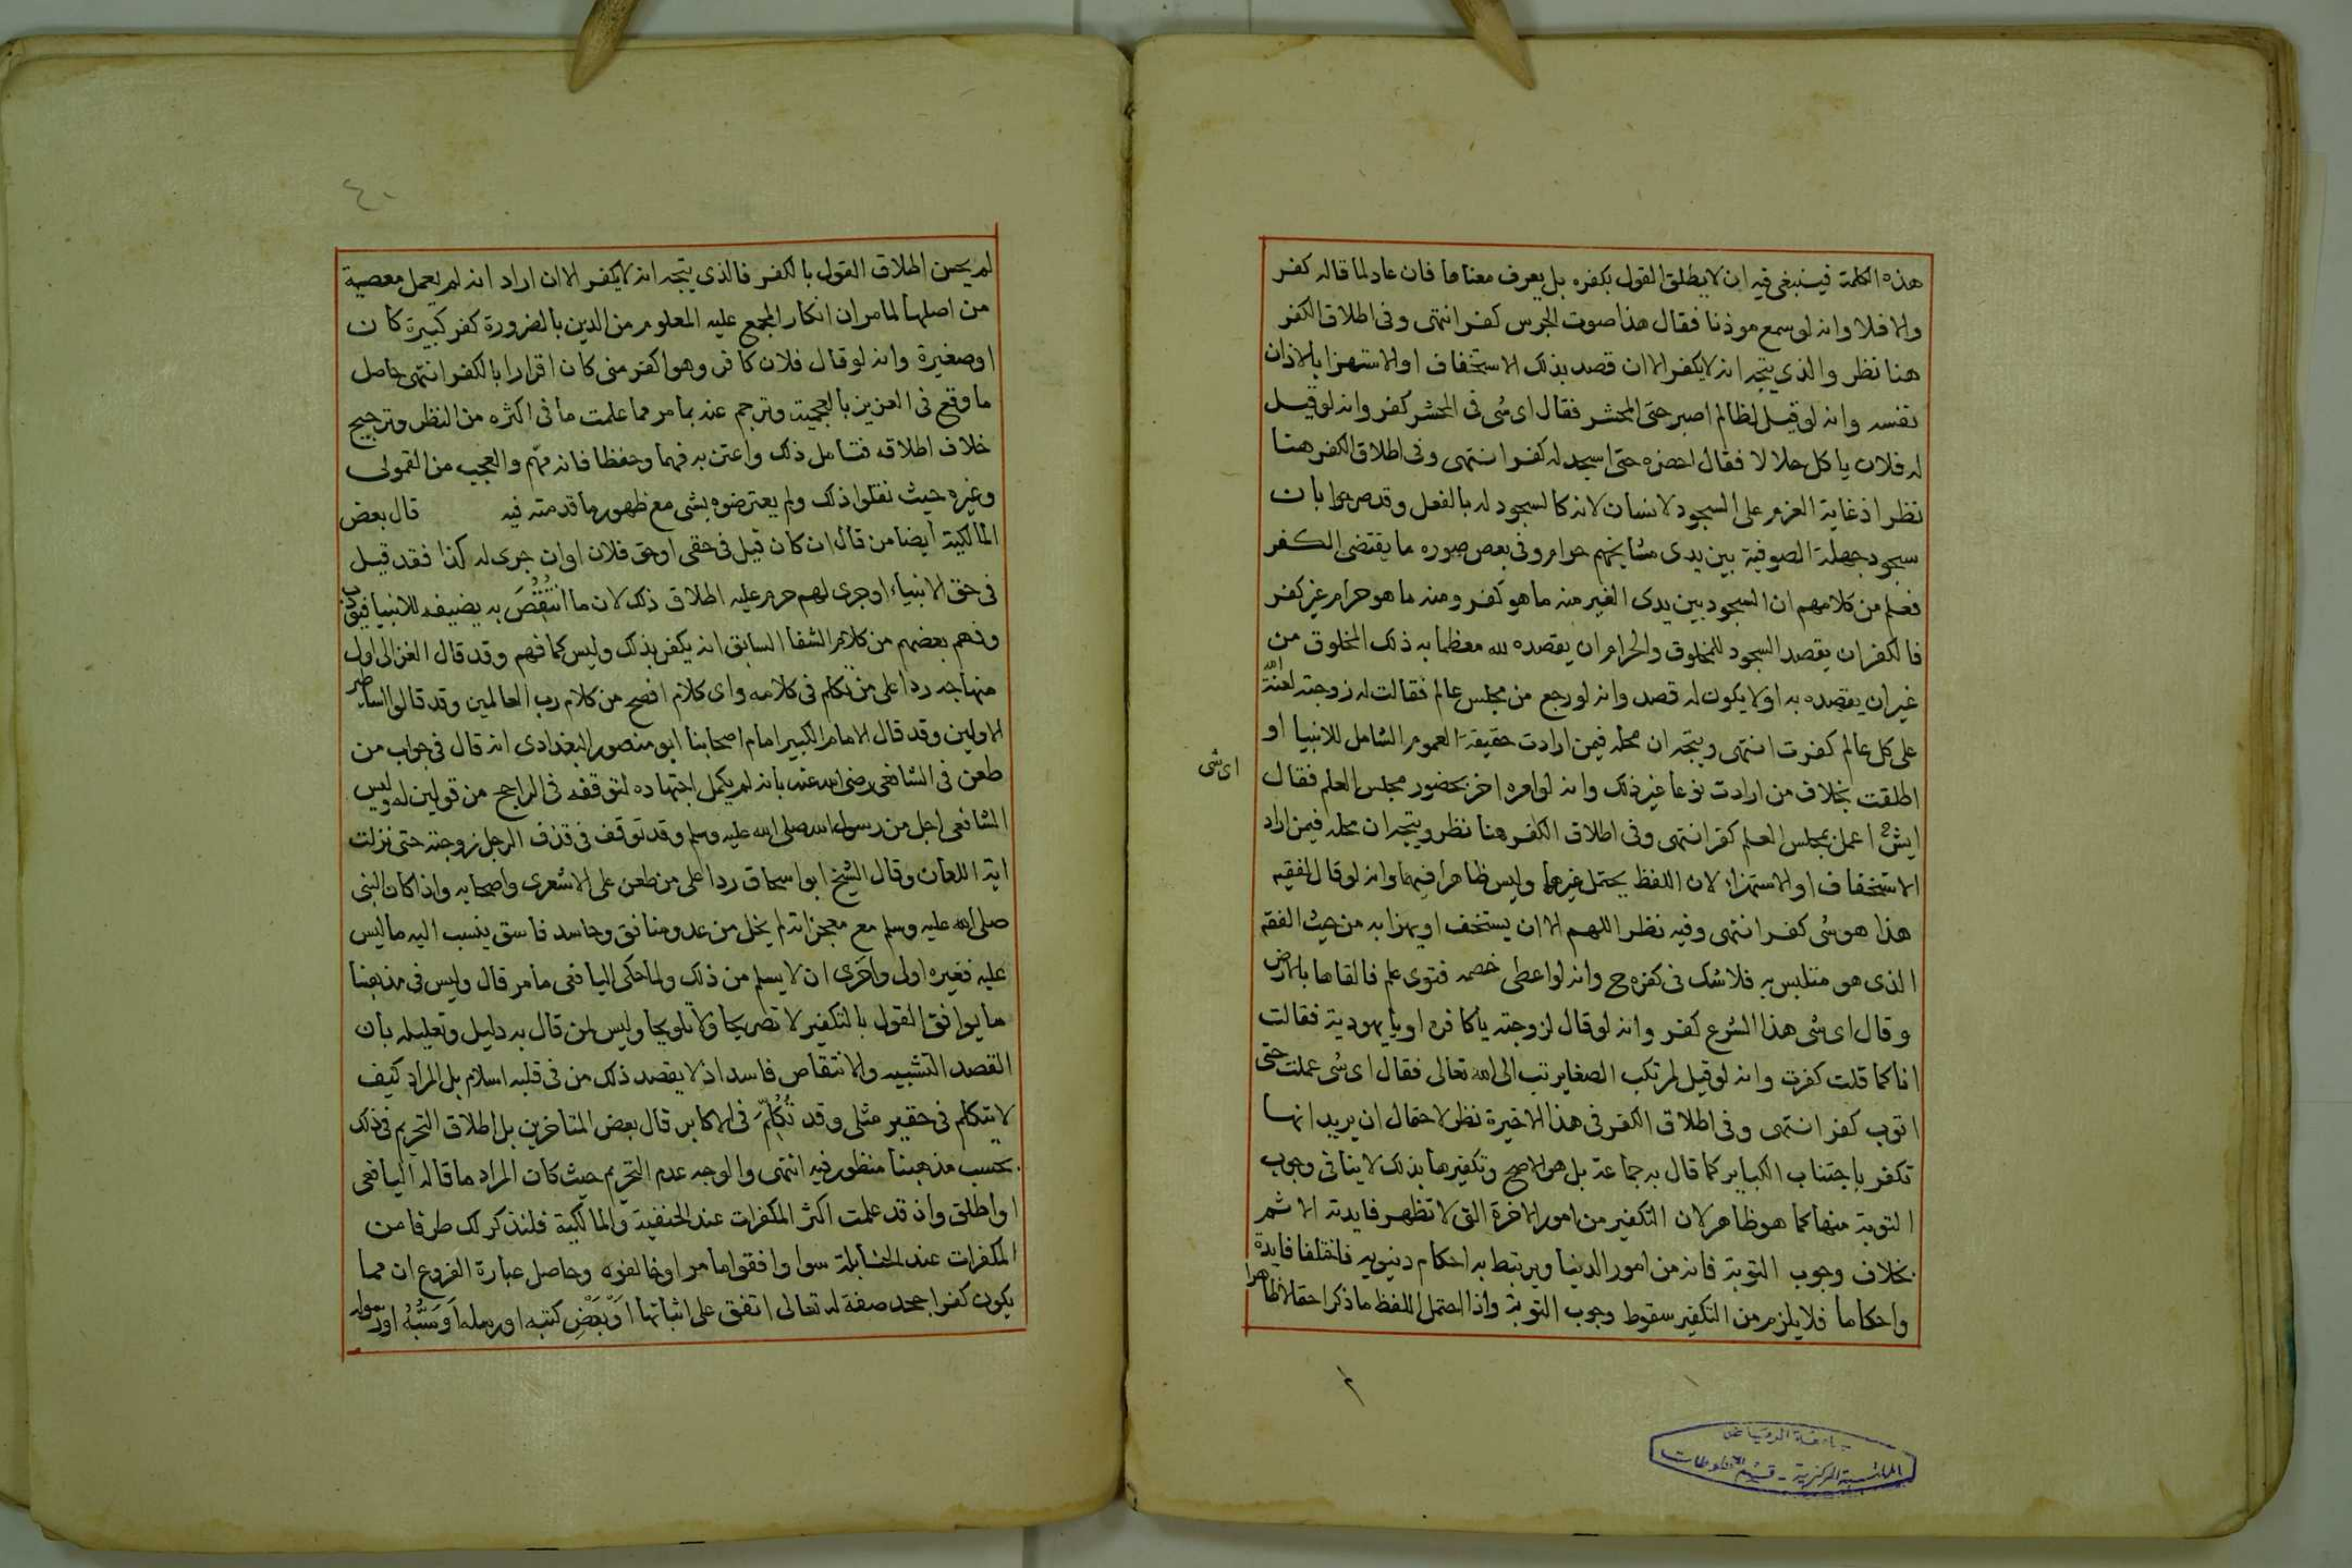 هذه الكلمة فينبغى فيه ان لا يطلق القول بكفره بل يعرف معناها فان عاد لما قاله كفر
والا فلا وانه لو سمع موذنا فقال هذا صوت الجرس كفر انتهى وفى اطلاق الكفر
هنا نظر والذى يتجه انه لا يكفر الا ان قصد بذلك الاستخفاف او الاستهزا بالاذان
نفسه وانه لو قيل لظالم اصبر حتى المحشر فقال اى شى فى المحشر كفر وانه لو قيل
له فلان ياكل حلالا فقال احضره حتى اسجد له كفر انتهى وفى اطلاق الكفر هنا
نظر اذ غاية العزم على السجود لانسان لانه كالسجود له بالفعل وقد صرحوا بان
سجود جهلة الصوفية بين يدى مشايخهم حرام وفى بعض صوره ما يقتضى الكفر
فعلم من كلامهم ان السجود بين يدى الغير منه ما هو كفر ومنه ما هو حرام غير كفر
فالكفر ان يقصد السجود للمخلوق والحرام ان يقصده لله معظما به ذلك المخلوق من
غير ان يقصده به او لا يكون له قصد وانه لو رجع من مجلس عالم فقالت له زوجته لعنة الله
على كل عالم كفرت انتهى ويتجه ان محله فيمن ارادت حقيقة العموم الشامل للانبيا او
اطلقت بخلاف من ارادت نوعا غير ذلك وانه لو امره اخر بحضور مجلس العلم فقال
اى شى
ايش اعمل بمجلس العلم كفر انتهى وفى اطلاق الكفر هنا نظر ويتجه ان محله فيمن اراد
الاستخفاف او الاستهزا لان اللفظ يحتمل غيرهما وليس ظاهرا فيهما وانه لو قال لفقيه
هذا هو شى كفر انتهى وفيه نظر اللهم الا ان يستخف او يهزا به من حيث الفقه
الذى هو متلبس به فلا شك فى كفره ح وانه لو اعطى خصمه فتوى علم فالقاها بالارض
وقال اى شى هذا الشرع كفر وانه لو قال لزوجته يا كافره او يا يهودية فقالت
انا كما قلت كفرت وانه لو قيل لمرتكب الصغاير تب الى الله تعالى فقال اى شى عملت حتى
اتوب كفر انتهى وفى اطلاق الكفر فى هذا الاخيرة نظر لاحتمال ان يريد انها
تكفر باجتناب الكباير كما قال به جماعة بل هو الاصح وتكفيرها بذلك لا ينافى وجوب
التوبة منها كما هو ظاهر لان التكفير من امور الاخرة التى لا تظهر فايدته الا ثم
بخلاف وجوب التوبة فانه من امور الدنيا ويرتبط به احكام دنيويه فاختلفا فايدة
واحكاما فلا يلزم من التكفير سقوط وجوب التوبة واذا احتمل اللفظ ما ذكر احتمالا ظاهرا
٤٠
لم يحسن اطلاق القول بالكفر فالذى يتجه انه لا يكفر الا ان اراد انه لم يعمل معصية
من اصلها لما مر ان انكار المجمع عليه المعلوم من الدين بالضرورة كفر كبيرة كان
او صغيرة وانه لو قال فلان كافر وهو اكفر منى كان اقرارا بالكفر انتهى حاصل
ما وقع فى العزيز بالعجمية وترجم عنه بما مر مما علمت ما فى اكثره من النظر وترجيح
خلاف اطلاقه فتامل ذلك واعتن به فهما وحفظا فانه مهم والعجب من القمولى
وغيره حيث نقلوا ذلك ولم يعترضوه بشى مع ظهور ما قدمته فيه قال بعض
المالكية ايضا من قال ان كان قيل فى حقى او حق فلان او ان جرى له كذا فقد قيل
فى حق الانبياء او جرى لهم حرم عليه اطلاق ذلك لان ما انتقص به يضيفه للانبيا فيودب
وفهم بعضهم من كلام الشفا السابق انه يكفر بذلك وليس كما فهم وقد قال الغزالى اول
منهاجه ردا على من تكلم فى كلامه واى كلام افصح من كلام رب العالمين وقد قالوا اساطير
الاولين وقد قال الامام الكبير امام اصحابنا ابو منصور البغدادى انه قال فى جواب من
طعن فى الشافعى رضى الله عنه بانه لم يكمل اجتهاده لتوقفه فى الراجح من قولين له وليس
الشافعى اجل من رسول الله صلى الله عليه وسلم وقد توقف فى قذف الرجل زوجته حتى نزلت
اية اللعان وقال الشيخ ابو اسحاق ردا على من طعن على الاشعرى واصحابه واذا كان النبى
صلى الله عليه وسلم مع معجزاته لم يخل من عدو ومنافق وحاسد فاسق ينسب اليه ما ليس
عليه فغيره اولى واحرى ان لا يسلم من ذلك ولما حكى اليافعى ما مر قال وليس فى مذهبنا
ما يوافق القول بالتكفير لا تصريحا ولا تلويحا وليس لمن قال به دليل وتعليله بان
القصد التشبيه والانتقاص فاسد اذ لا يقصد ذلك من فى قلبه اسلام بل المراد كيف
لا يتكلم فى حقير مثلى وقد تُكُلِّمَ فى الاكابر قال بعض المتاخرين بل اطلاق التحريم فى ذلك
بحسب مذهبنا منظور فيه انتهى والوجه عدم التحريم حيث كان المراد ما قاله اليافعى
او اطلق واذ قد علمت اكثر المكفرات عند الحنفية والمالكية فلنذكر لك طرفا من
المكفرات عند الحنابلة سوا وافقوا ما مر او خالفوه وحاصل عبارة الفروع ان مما
يكون كفرا جحد صفة له تعالى اتفق على اثباتها اَوْ بَعْضِ كتبه او رسله اَوْ سَبَّهُ او رسوله
جامعة الرياض
المكتبة المركزية - قسم المخطوطات